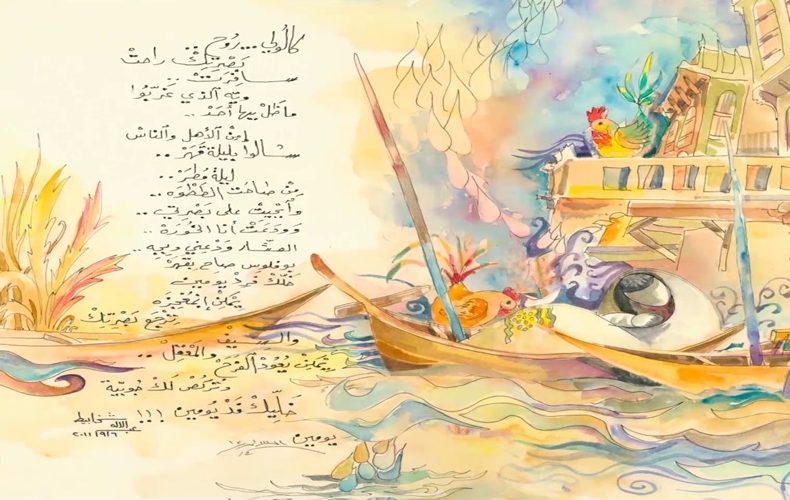 كالولي ... رُوح ..
بَصْرتِكْ راحتْ
سافرَتْ ..
ويّه الذي غَرّبُوا
ماظَلْ بيها أحَدْ ..
إمْنْ الأهل والناسْ
شالوا بليلة قَهَرْ ..
ليلة مُطَرْ ..
مِنْ صاحَت الطَطْوَه ..
وابجيتْ على بَصْرتي ..
وودعَتْ أنا الحُورَة ..
الصنگر ودعني وبجه ..
بوفلوس صاح بقهرْ
خَلّكْ فَردْ يومين
يمْكِنْ إبْمُعْجِزَه
تِرْجَع بَصْرتِكْ
والسيفْ والمَعْقَل ..
يمْكِنْ يعُودْ الفَرَحْ
وتركُضْ لَكْ حُوبيّة
خَلّيكْ فَدْ يُومين !!!
يومين
شخابيط
عبدالاله
٢٠١١/٩/٦